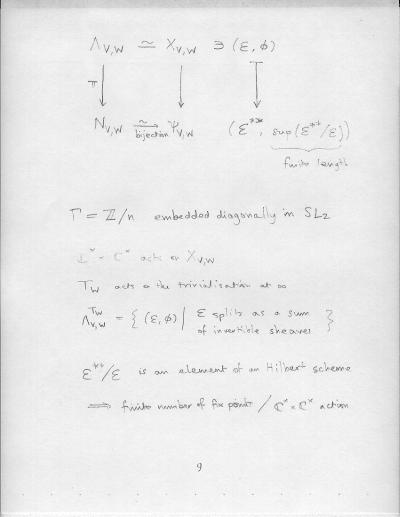 Λ_{V,W} ≃ X_{V,W} ∋ (ℰ, φ)
π
N_{V,W} ≃ bijection Ψ_{V,W} (ℰ**, sup(ℰ**/ℰ))
finite length
Γ = ℤ/n embedded diagonally in SL₂
ℂ* × ℂ* acts on X_{V,W}
T_W acts on the trivialisation at ∞
Λ_{V,W}^{T_W} = { (ℰ, φ) | ℰ splits as a sum
of invertible sheaves }
ℰ**/ℰ is an element of an Hilbert scheme
⟹ finite number of fix point / ℂ* × ℂ* action
9